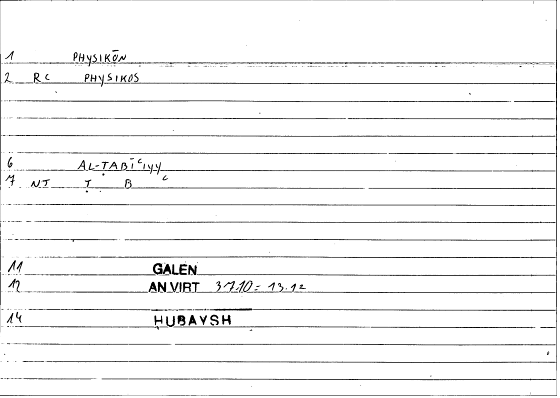 1 PHYSIKŌN
2 RC PHYSIKOS
6 AL-ṬABĪʿIYY
7 NT Ṭ B ʿ
11 GALEN
12 AN VIRT 37.10 = 13.12
14 ḤUBAYSH